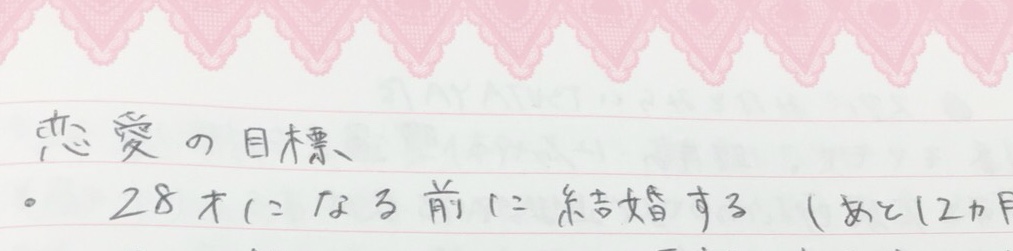 恋愛の目標
・ 28才になる前に結婚する (あと12ヵ月